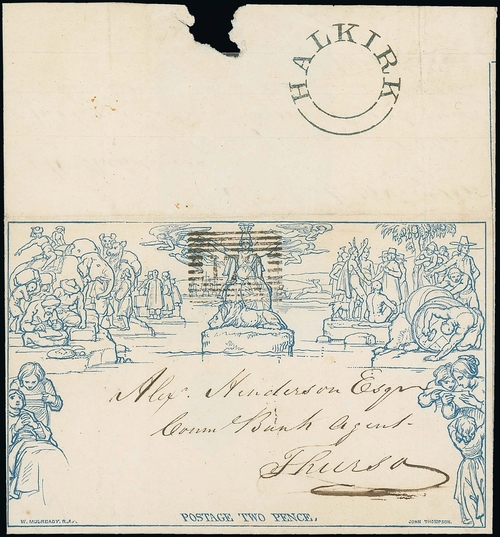 HALKIRK
Alexr. Henderson Esqr
Comml Bank Agent
Thurso
W. MULREADY. R.A.
POSTAGE TWO PENCE.
JOHN THOMPSON.